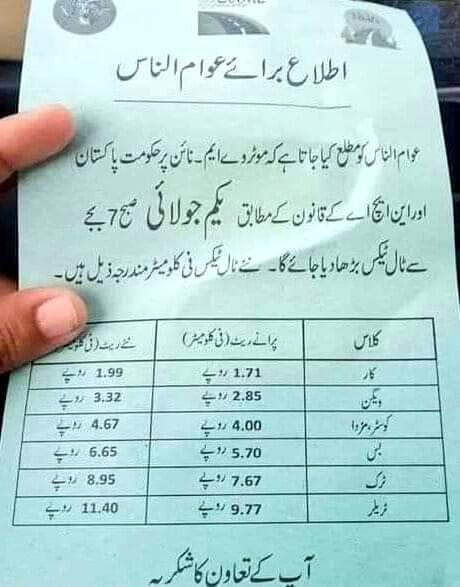 اطلاع برائے عوام الناس
عوام الناس کو مطلع کیا جاتا ہے کہ موٹروے ایم۔نائن پر حکومت پاکستان
اور این ایچ اے کے قانون کے مطابق یکم جولائی صبح 7 بجے
سے ٹال ٹیکس بڑھا دیا جائے گا۔ نئے ٹال ٹیکس فی کلومیٹر مندرجہ ذیل ہیں۔
کلاس پرانے ریٹ (فی کلومیٹر) نئے ریٹ (فی کلومیٹر
کار 1.71 روپے 1.99 روپے
ویگن 2.85 روپے 3.32 روپے
کوسٹر،مزدا 4.00 روپے 4.67 روپے
بس 5.70 روپے 6.65 روپے
ٹرک 7.67 روپے 8.95 روپے
ٹریلر 9.77 روپے 11.40 روپے
آپ کے تعاون کا شکریہ